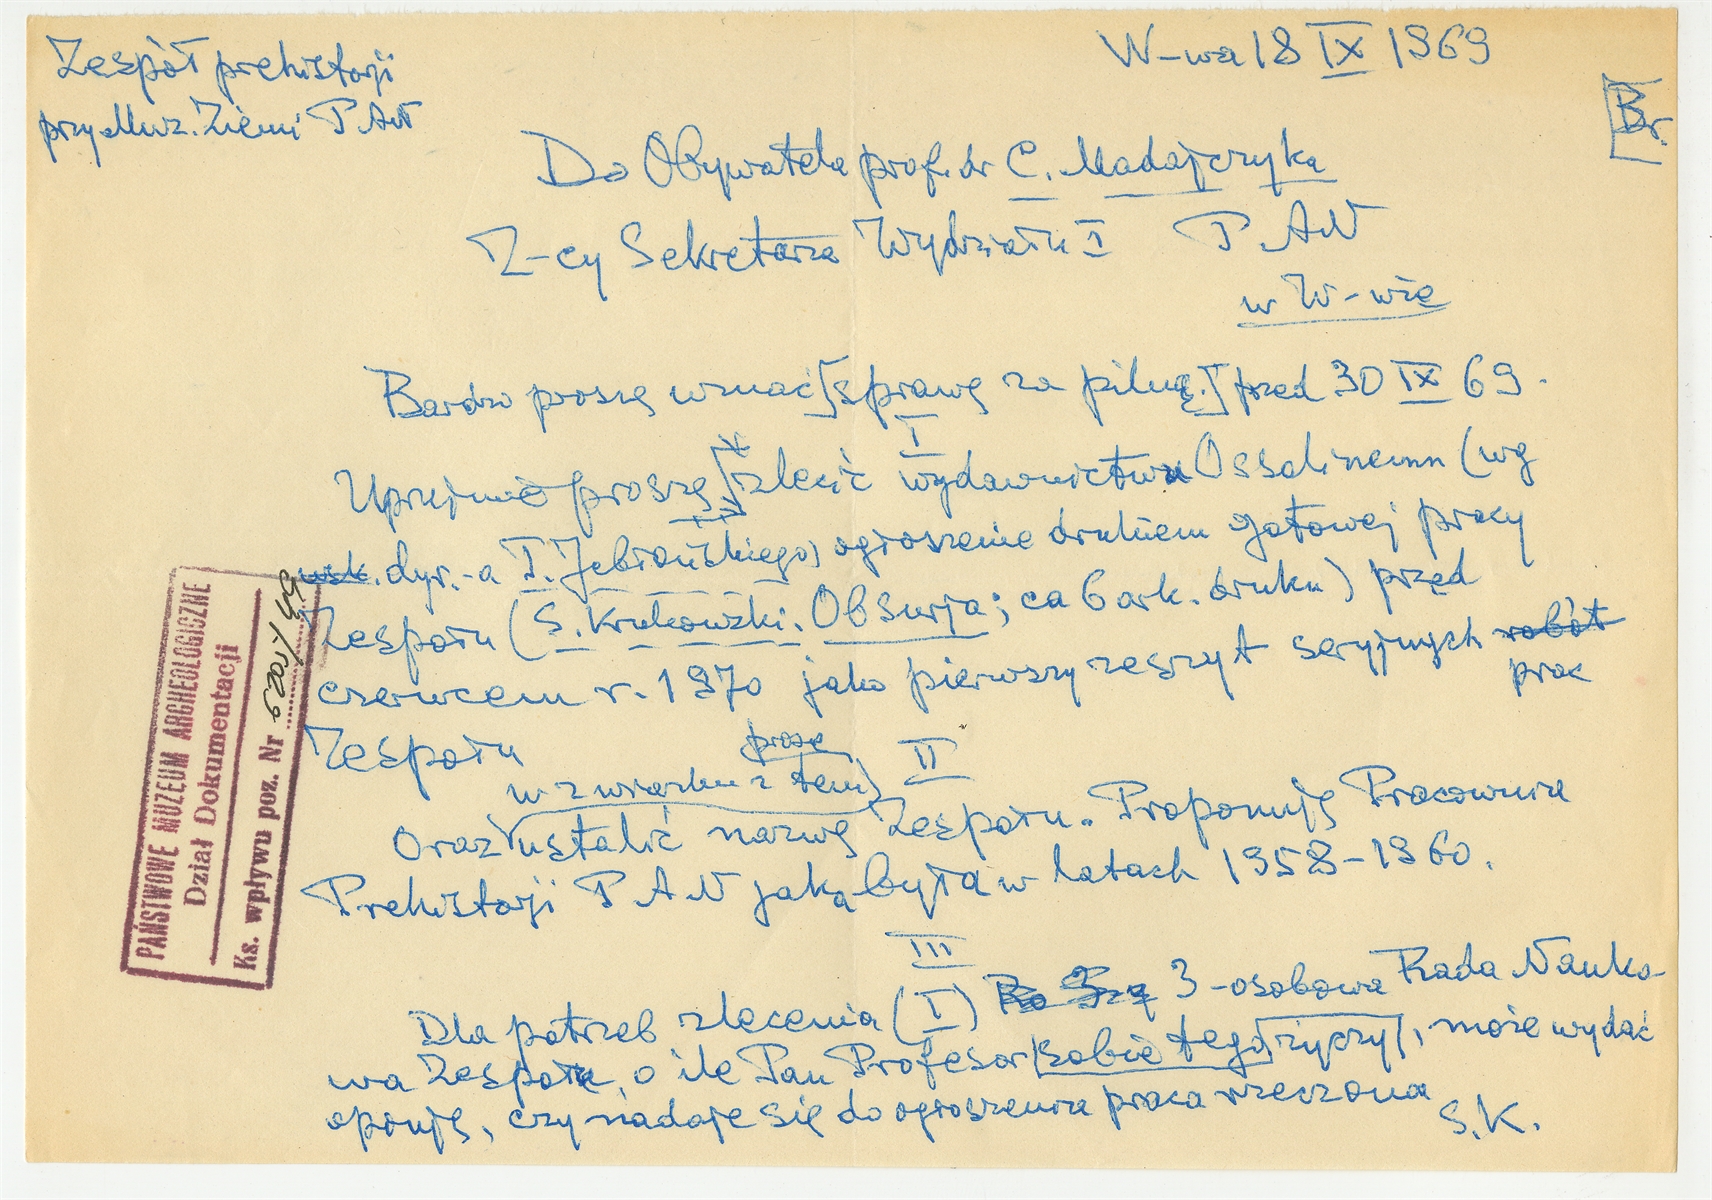 Zespół prehistorji
przy Muz. Ziemi PAN
W-wa 18 IX 1969
Br.
Do Obywatela prof. dr C. Madajczyka
Z-cy Sekretarza Wydziału I PAN
w W-wie
Bardzo proszę uznać sprawę za pilną. przed 30 IX 69.
I
Uprzejmie proszę zlecić wydawnictwu Ossolineum (wg
wsk. dyr.-a T. Jabłońskiego) ogłoszenie drukiem gotowej pracy
Zespołu (S. Krukowski. Obsurja; ca 6 ark. druku) przed
czerwcem r. 1970 jako pierwszy zeszyt seryjnych robót
prac
Zespołu
II
proszę
w związku z tem
Oraz ustalić nazwę Zespołu. Proponuję Pracownia
Prehistorji PAN jaką była w latach 1958-1960.
III
Dla potrzeb zlecenia (I) 3-osobowa Rada Nauko-
wa Zespołu, o ile Pan Profesor sobie tego życzy, może wydać
opinję, czy nadaje się do ogłoszenia praca rzeczona
S.K.
PAŃSTWOWE MUZEUM ARCHEOLOGICZNE
Dział Dokumentacji
Ks. wpływu poz. Nr